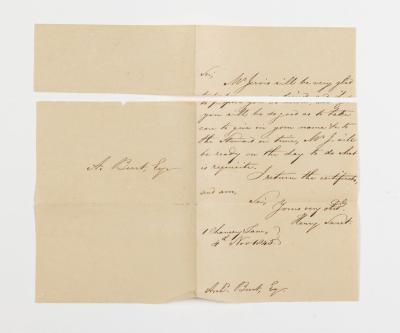 A. Burt, Esq.
Sir,
Mr. Jervis will be very glad
you will be so good as to take
care to give in your name to
the Steward in time, Mr J. will
be ready on the day to do what
is requisite.
I return the certificate,
and am,
Sir, Yours very
Henry
1 Chancery Lane,
4th Nov. 1845
Burt, Esq.